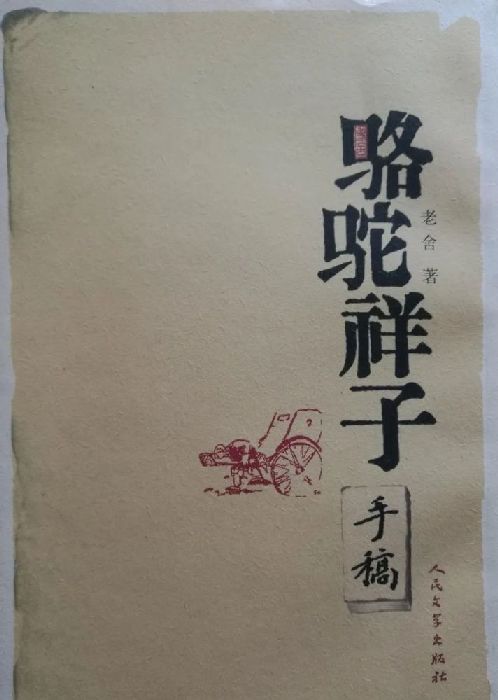 骆驼祥子
老舍 著
手稿
人民文学出版社